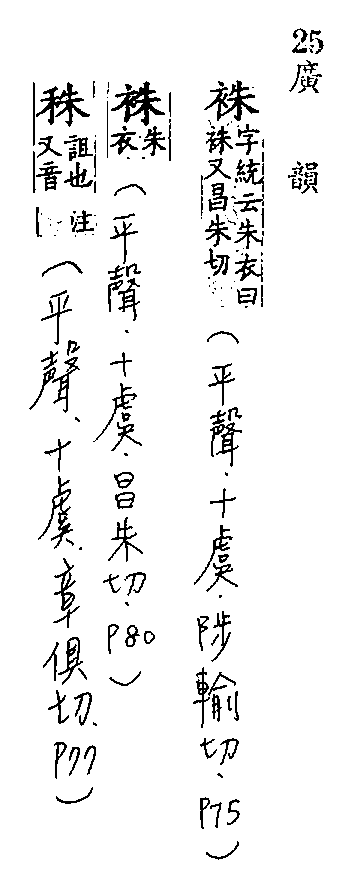 25 廣韻
袾 字統云朱衣曰袾又昌朱切 (平聲.十虞.陟輸切.P75)
袾 朱衣 (平聲.十虞.昌朱切.P80)
祩 詛也又音注 (平聲、十虞、章俱切、P77)